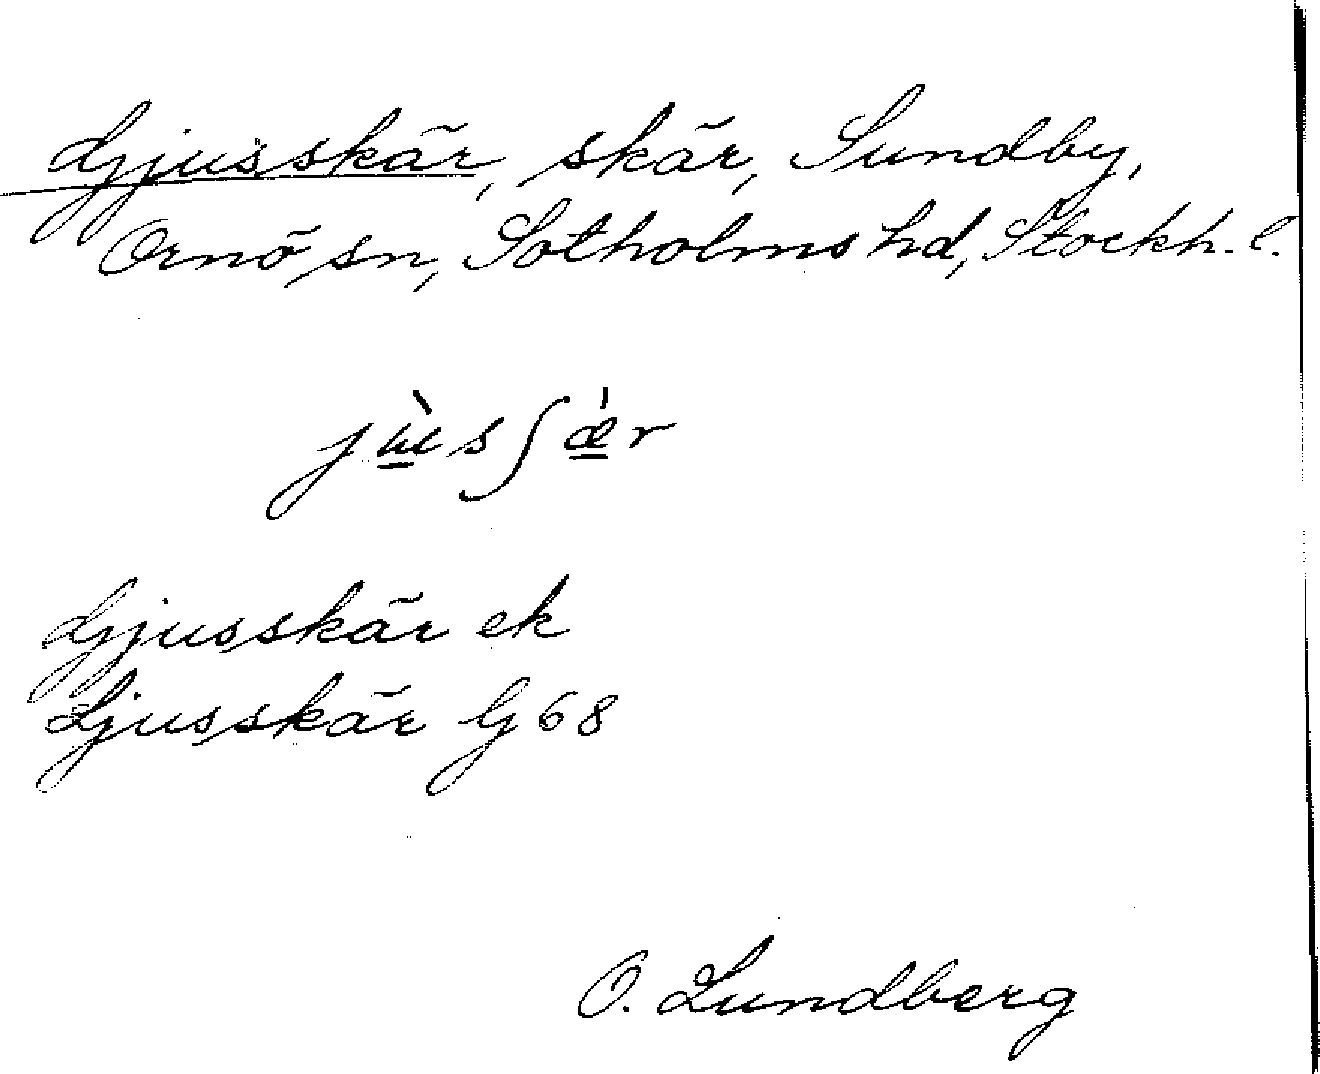 Ljusskär, skär, Sundby,
Ornö sn, Sotholms hd, Stockh. l.
jùsʃæ̀r
Ljusskär ek
Ljusskär G 68
O. Lundberg